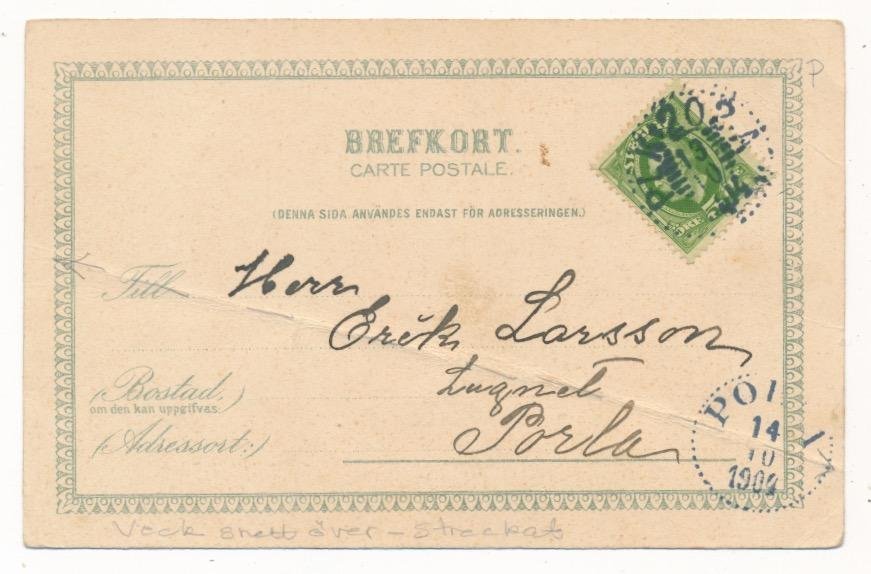 P
BREFKORT.
CARTE POSTALE.
(DENNA SIDA ANVÄNDES ENDAST FÖR ADRESSERINGEN.)
Till
Herr
Erik Larsson
Lugnet
Porla
(Bostad,
om den kan uppgifvas:)
(Adressort:)
14
10
1904
Veck snett över - Streckat